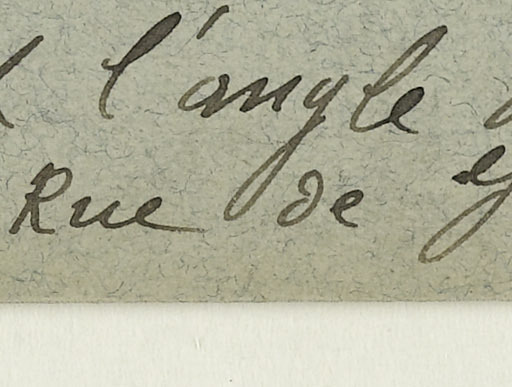 l'angle
Rue de